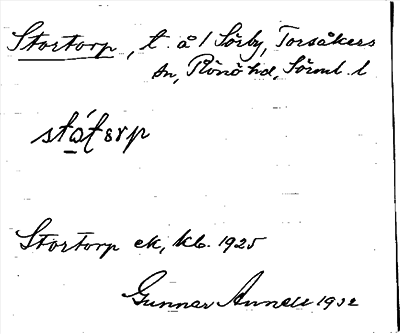 Stortorp, t. å / Sörby, Torsåkers
sn, Rönö hd, Sörml. l
ståtorp
Stortorp ek, kb. 1925
Gunnar Annell 1932